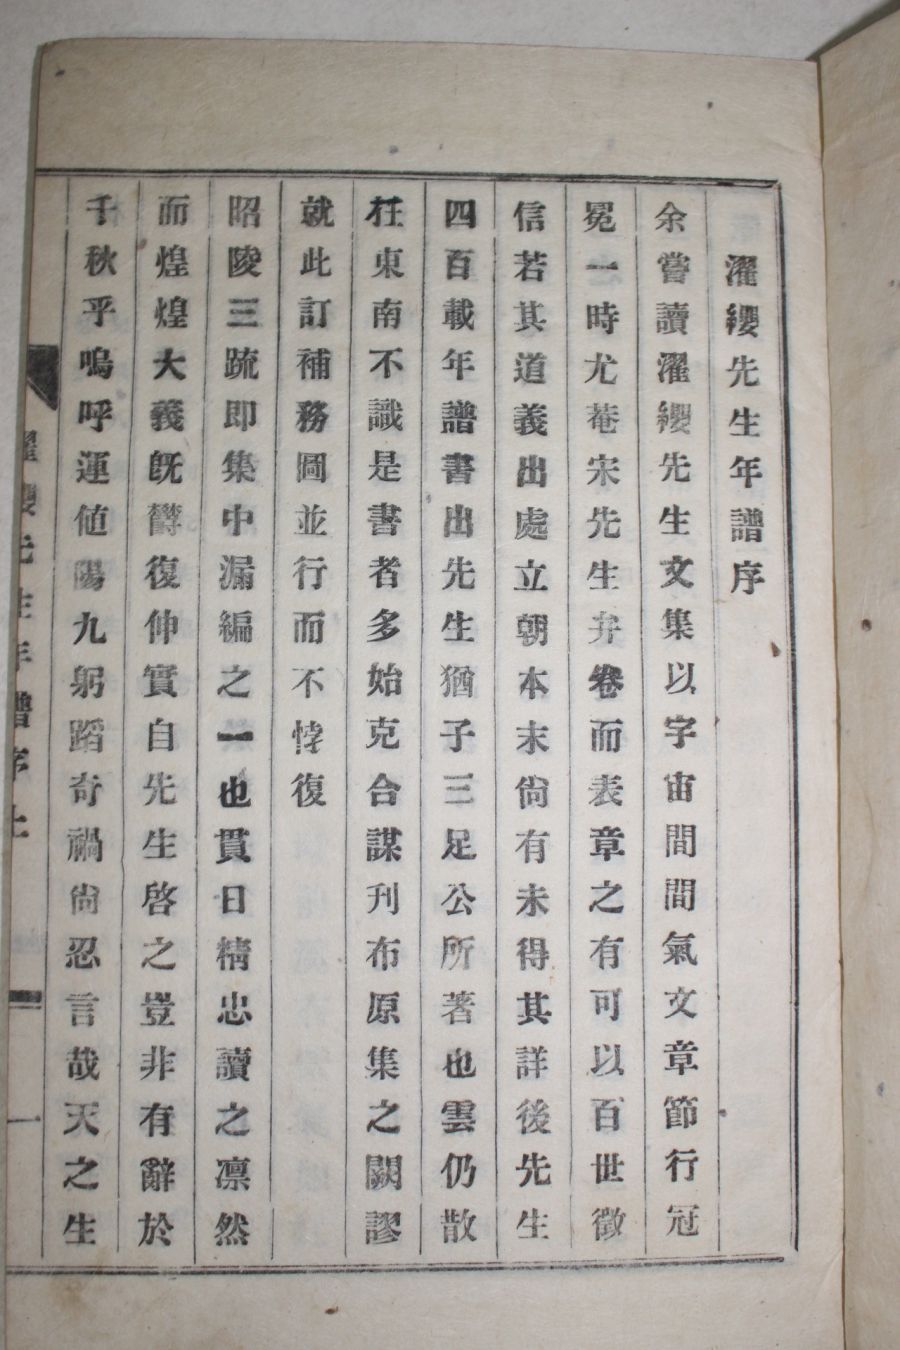 濯纓先生年譜序
余嘗讀濯纓先生文集以字宙間間氣文章節行冠
冕一時尤菴宋先生弁卷而表章之有可以百世徵
信若其道義出處立朝本末尙有未得其詳後先生
四百載年譜書出先生猶子三足公所著也雲仍散
在東南不識是書者多始克合謀刊布原集之闕謬
就此訂補務圖並行而不悖復
昭陵三疏即集中漏編之一也貫日精忠讀之凛然
而煌煌大義旣鬱復伸實自先生啓之豈非有辭於
千秋乎嗚呼運値陽九躬蹈奇禍尙忍言哉天之生
濯纓先生年譜序上
一